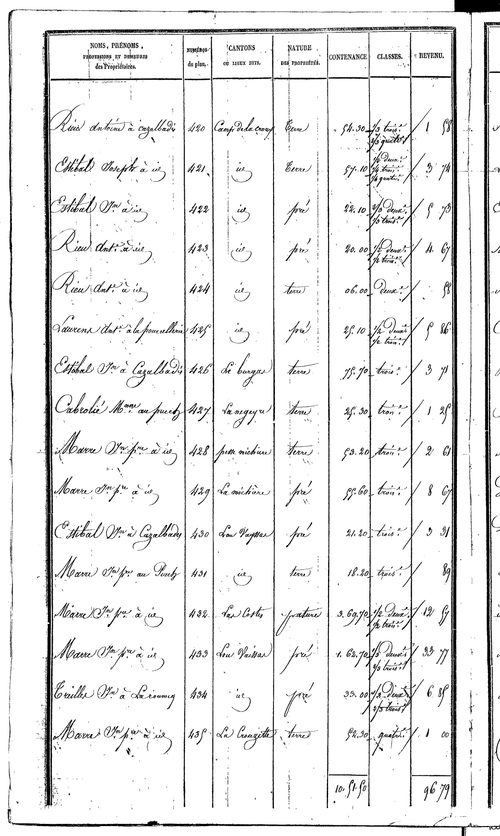 NOMS, PRÉNOMS, PROFESSIONS ET DEMEURES des Propriétaires. NUMÉROS du plan. CANTONS OU LIEUX DITS. NATURE DES PROPRIÉTÉS. CONTENANCE CLASSES. REVENU.
Rieu Antoine à cazalbadis 420 Camp de la croux terre 54.30 1/3 trois.e 2/3 quatr.e 1 58
Estibal Joseph à id 421 id terre 57.10 trois.e 3 74
Estibal J.n à id 422 id pré 22.10 deux.e trois.e 5 73
Rieu Ant.e à id 423 id pré 20.00 1/2 deux.e 1/2 trois.e 4 67
Rieu Ant.e à id 424 id terre 06.00 deux.e 55
Laurens Ant.e à la 425 id pré 25.10 1/2 deux.e 1/2 trois.e 5 86
Estibal J.n à Cazalbadis 426 Le burgas terre 75.70 trois.e 3 71
Cabrolié au puech 427 terre 25.30 trois.e 1 25
Marre J.n p.re à id 428 terre 53.20 trois.e 2 61
Marre J.n p.re à id 429 La pré 55.60 trois.e 8 67
Estibal J.n à Cazalbadis 430 Lou Vayssas pré 21.20 trois.e 3 31
Marre J.n p.re au Puech 431 id terre 18.20 trois.e 89
Marre J.n p.re à id 432 Las Costes pature 3.69.70 1/2 deux.e 1/2 trois.e 12 57
Marre J.n p.re à id 433 Lou Vaissas pré 1.62.70 deux.e trois.e 33 77
Treilles J.n à 434 id pré 33.00 deux.e trois.e 6 85
Marre J.n p.re à id 435 La Crouzette terre 52.30 quatr.e 1 00
10.51.50 96 79